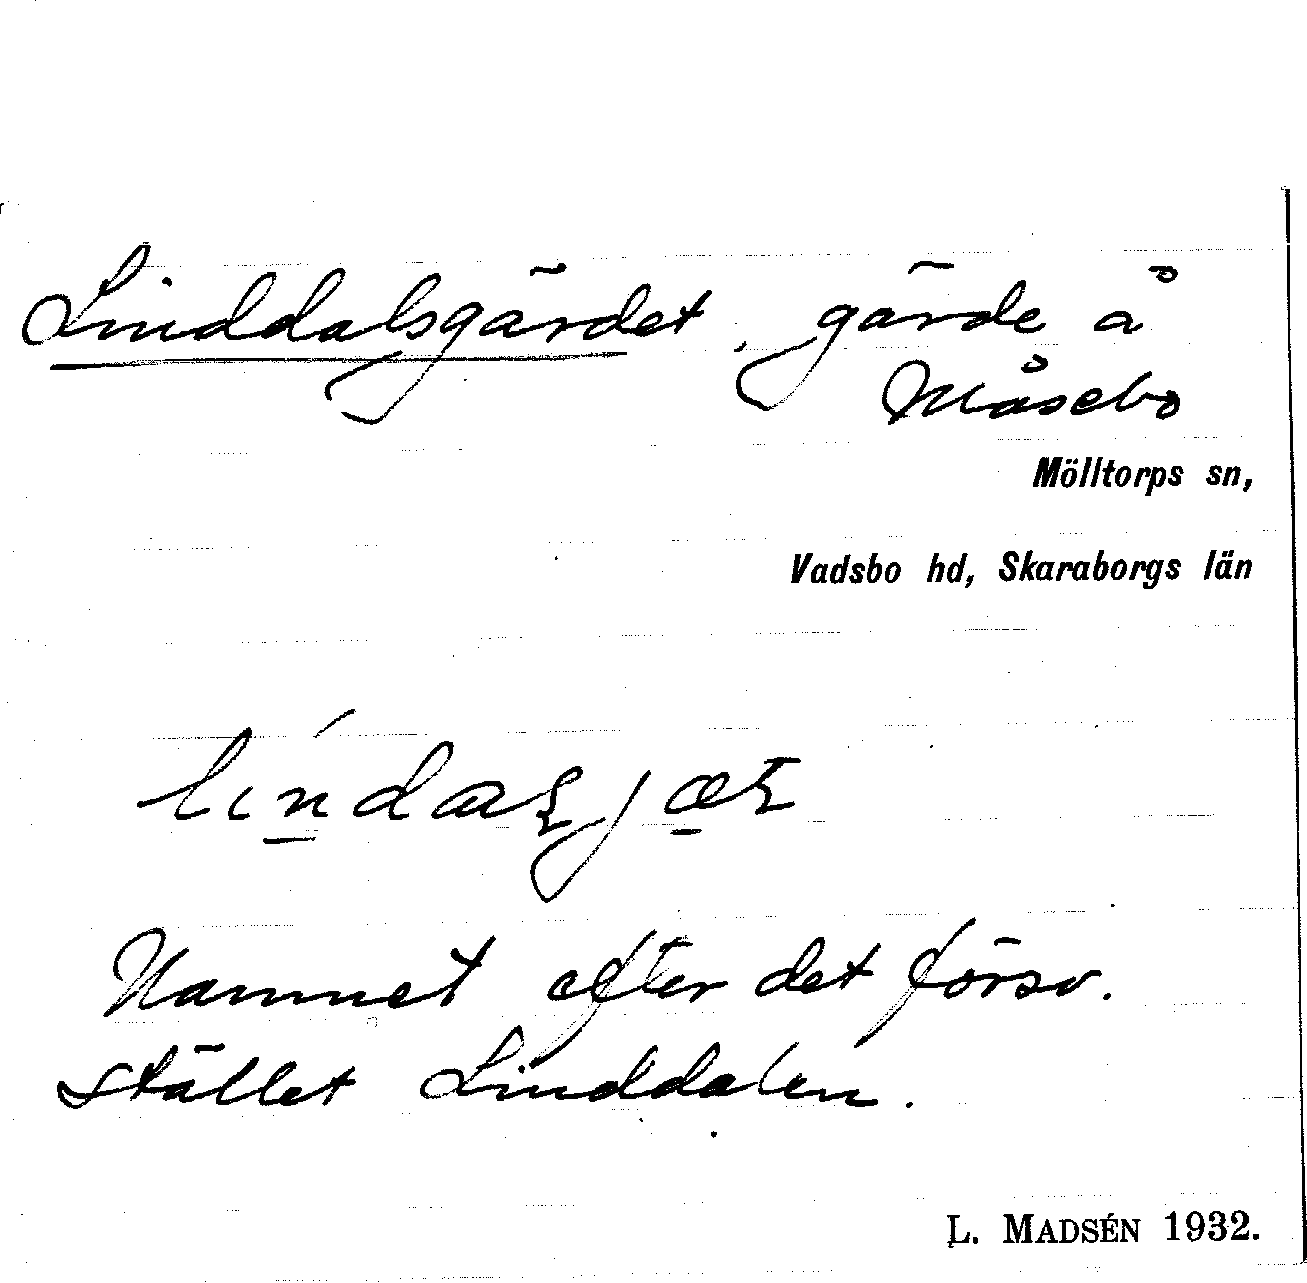 Linddalsgärdet, gärde å
Måsebo
Mölltorps sn,
Vadsbo hd, Skaraborgs län
Namnet efter det försv.
stället Linddalen.
L. MADSÉN 1932.